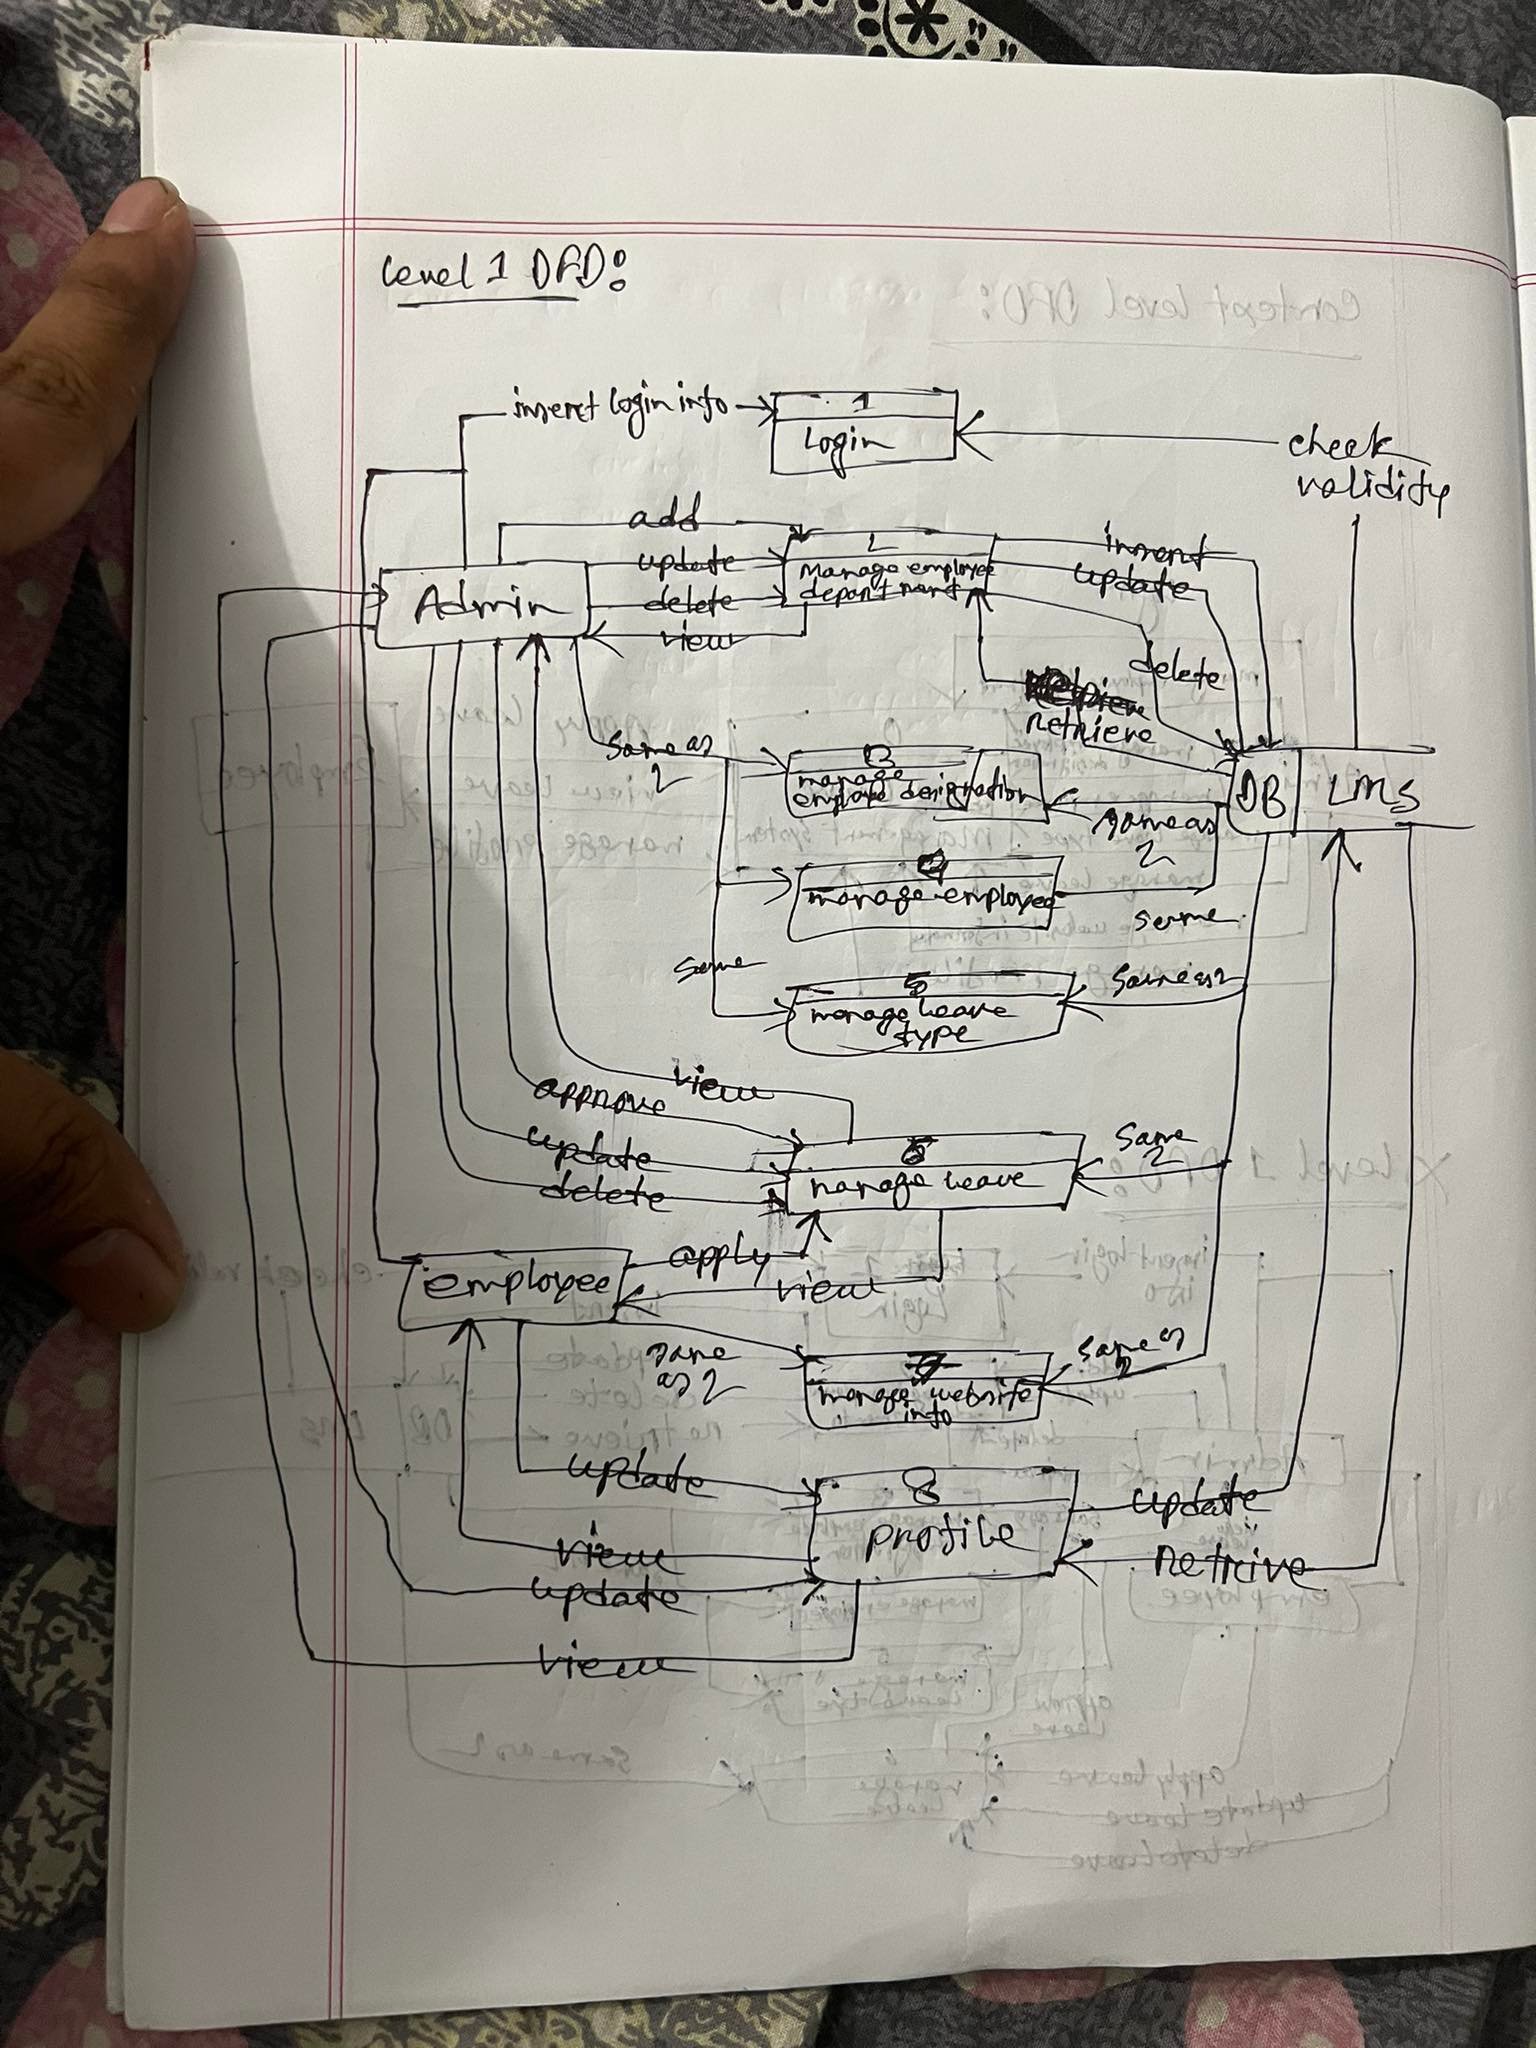 Level 1 DFD:
insert login info
1
Login
check
validity
add
update
delete
view
Admin
2
Manage employee
department
insert
update
delete
retrieve
same as
2
3
manage
employee designation
same as
2
DB
LMS
4
manage employee
same
same
5
manage leave
type
same as 2
view
approve
update
delete
6
manage leave
same
2
employee
apply
view
same
as 2
7
manage website
info
same as
2
update
8
profile
update
view
retrive
update
view